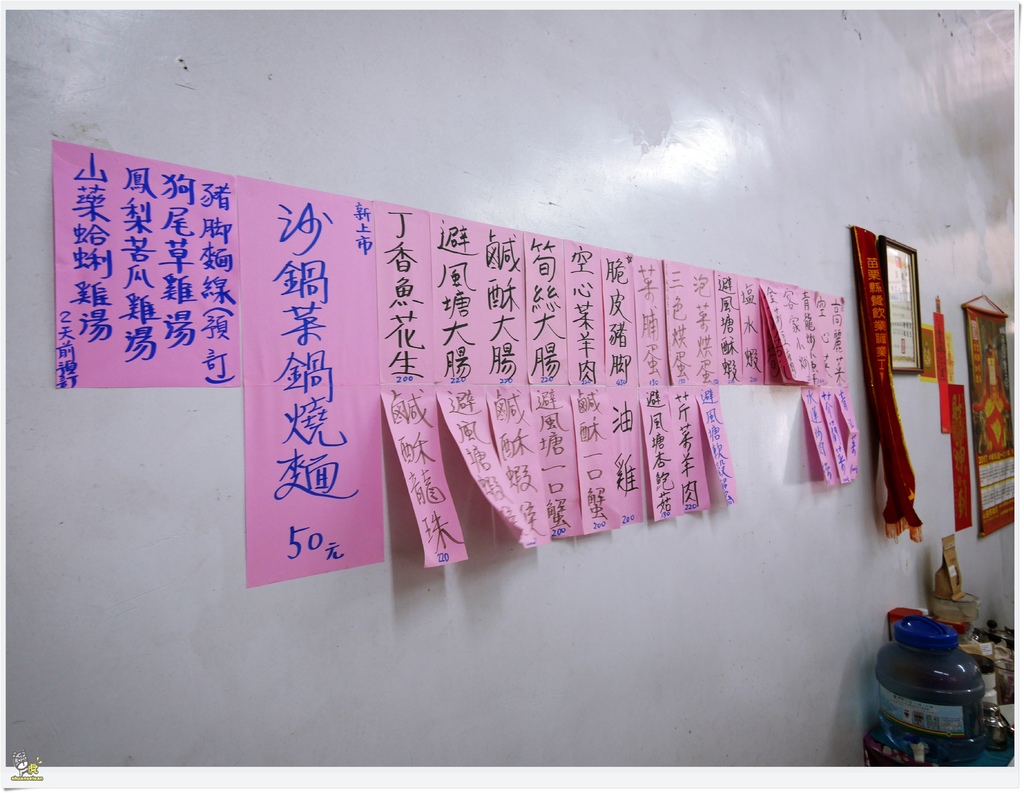 豬腳麵線(預訂)
狗尾草雞湯
鳳梨苦瓜雞湯
山藥蛤蜊雞湯
2天前預訂
新上市
沙鍋菜鍋燒麵
50元
丁香魚花生
200
避風塘大腸
220
鹹酥大腸
220
筍絲大腸
220
空心菜羊肉
脆皮豬腳
菜脯蛋
三色烘蛋
泡菜烘蛋
避風塘酥蝦
塩水蝦
客家小炒
空心菜
高麗菜
鹹酥龍珠
220
避風塘
鹹酥蝦猴
避風塘一口蟹
200
鹹酥一口蟹
200
油雞
200
避風塘杏鮑菇
芥菜羊肉
220
避風塘
苗栗縣餐飲業職業工
2017